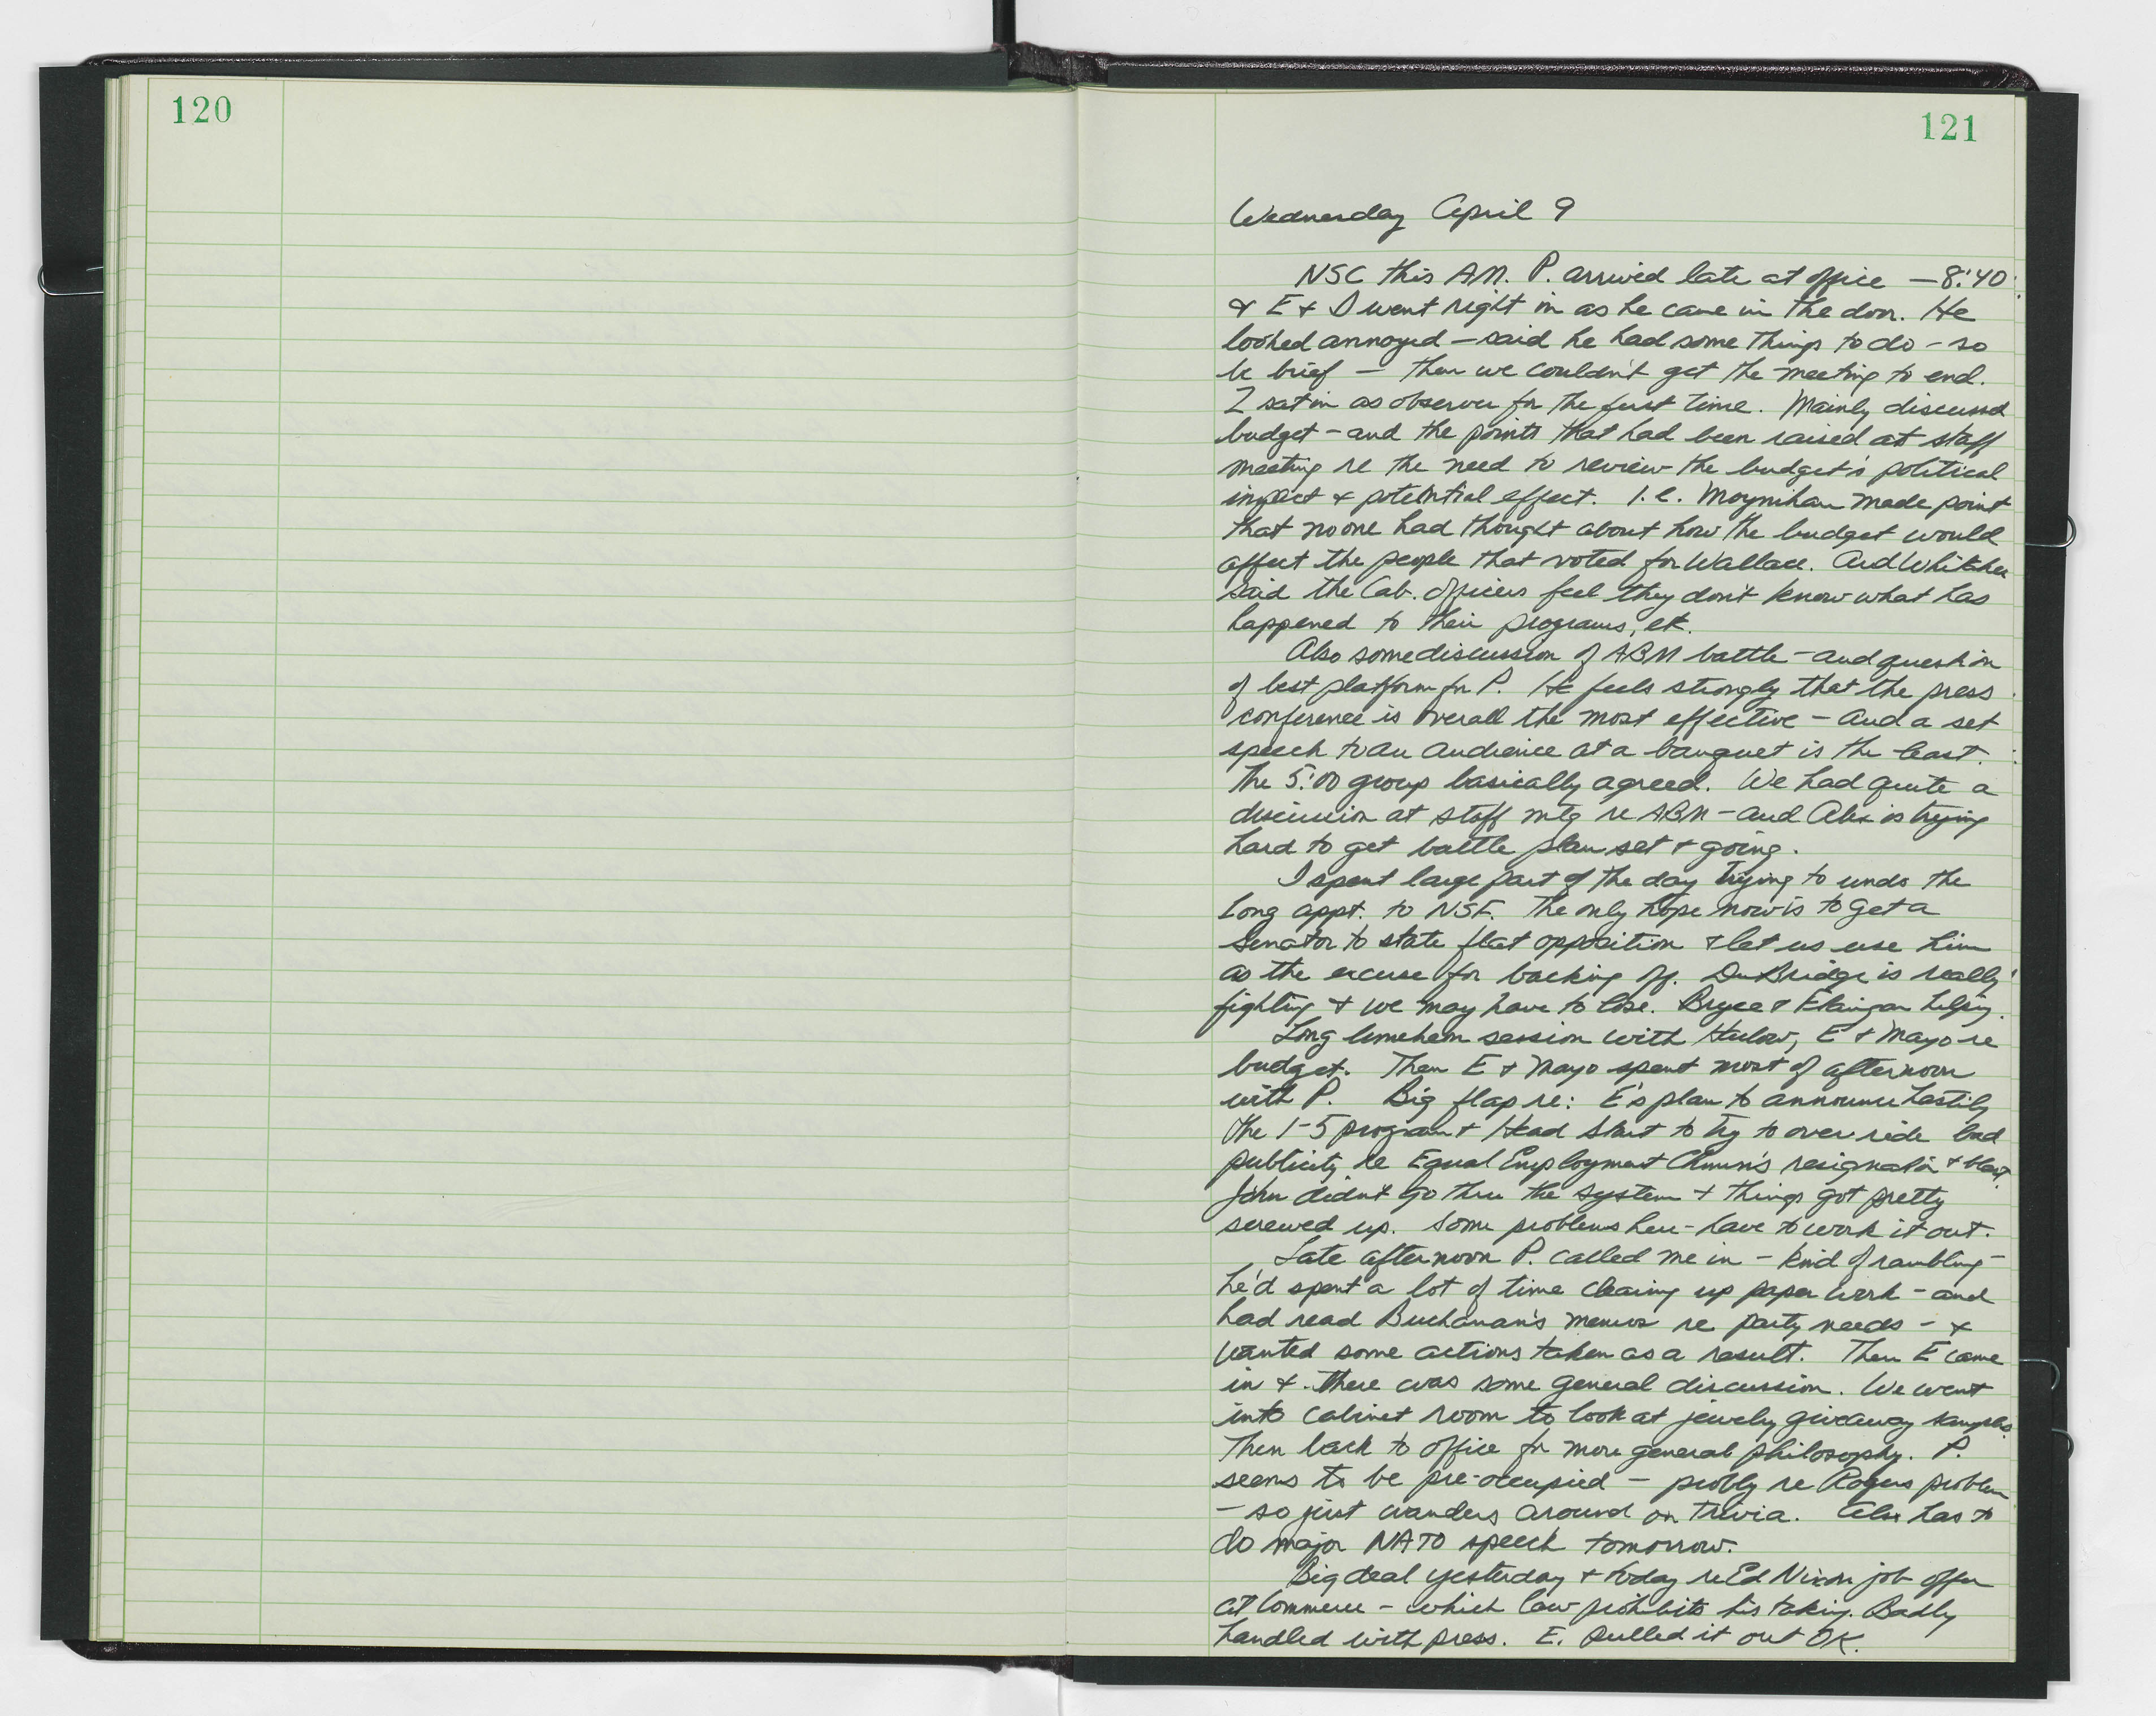 120
121
Wednesday April 9
NSC this AM. P. arrived late at office — 8:40
& E & I went right in as he came in the door. He
looked annoyed — said he had some things to do - so
be brief — then we couldn't get the meeting to end.
I sat in as observer for the first time. Mainly discussed
budget - and the points that had been raised at staff
meeting re the need to review the budget's political
impact & potential effect. I.e. Moynihan made point
that no one had thought about how the budget would
affect the people that voted for Wallace. And Whitaker
said the Cab. officers feel they don't know what has
happened to their programs, etc.
Also some discussion of ABM battle - and question
of best platform for P. He feels strongly that the press
conference is overall the most effective - and a set
speech to an audience at a banquet is the least.
The 5:00 group basically agreed. We had quite a
discussion at staff mtg re ABM - and Alex is trying
hard to get battle plan set & going.
I spent large part of the day trying to undo the
Long appt. to NSF. The only hope now is to get a
Senator to state flat opposition & let us use him
as the excuse for backing off. DuBridge is really
fighting & we may have to lose. Bryce & Flanigan helping.
Long luncheon session with Harlow, E & Mayo re
budget. Then E & Mayo spent most of afternoon
with P. Big flap re: E's plan to announce hastily
the 1-5 program & Head Start to try to over ride bad
publicity re Equal Employment Chmn's resignation &
John didn't go thru the system & things got pretty
screwed up. Some problems here - have to work it out.
Late afternoon P. called me in - kind of rambling -
he'd spent a lot of time clearing up paper work - and
had read Buchanan's memos re party needs - &
wanted some actions taken as a result. Then E came
in & there was some general discussion. We went
into cabinet room to look at jewelry giveaway samples.
Then back to office for more general philosophy. P.
seems to be pre-occupied — probly re Rogers problem
- so just wanders around on trivia. Also has to
do major NATO speech tomorrow.
Big deal yesterday & today re Ed Nixon job offer
at Commerce - which law prohibits his taking. Badly
handled with press. E. pulled it out OK.